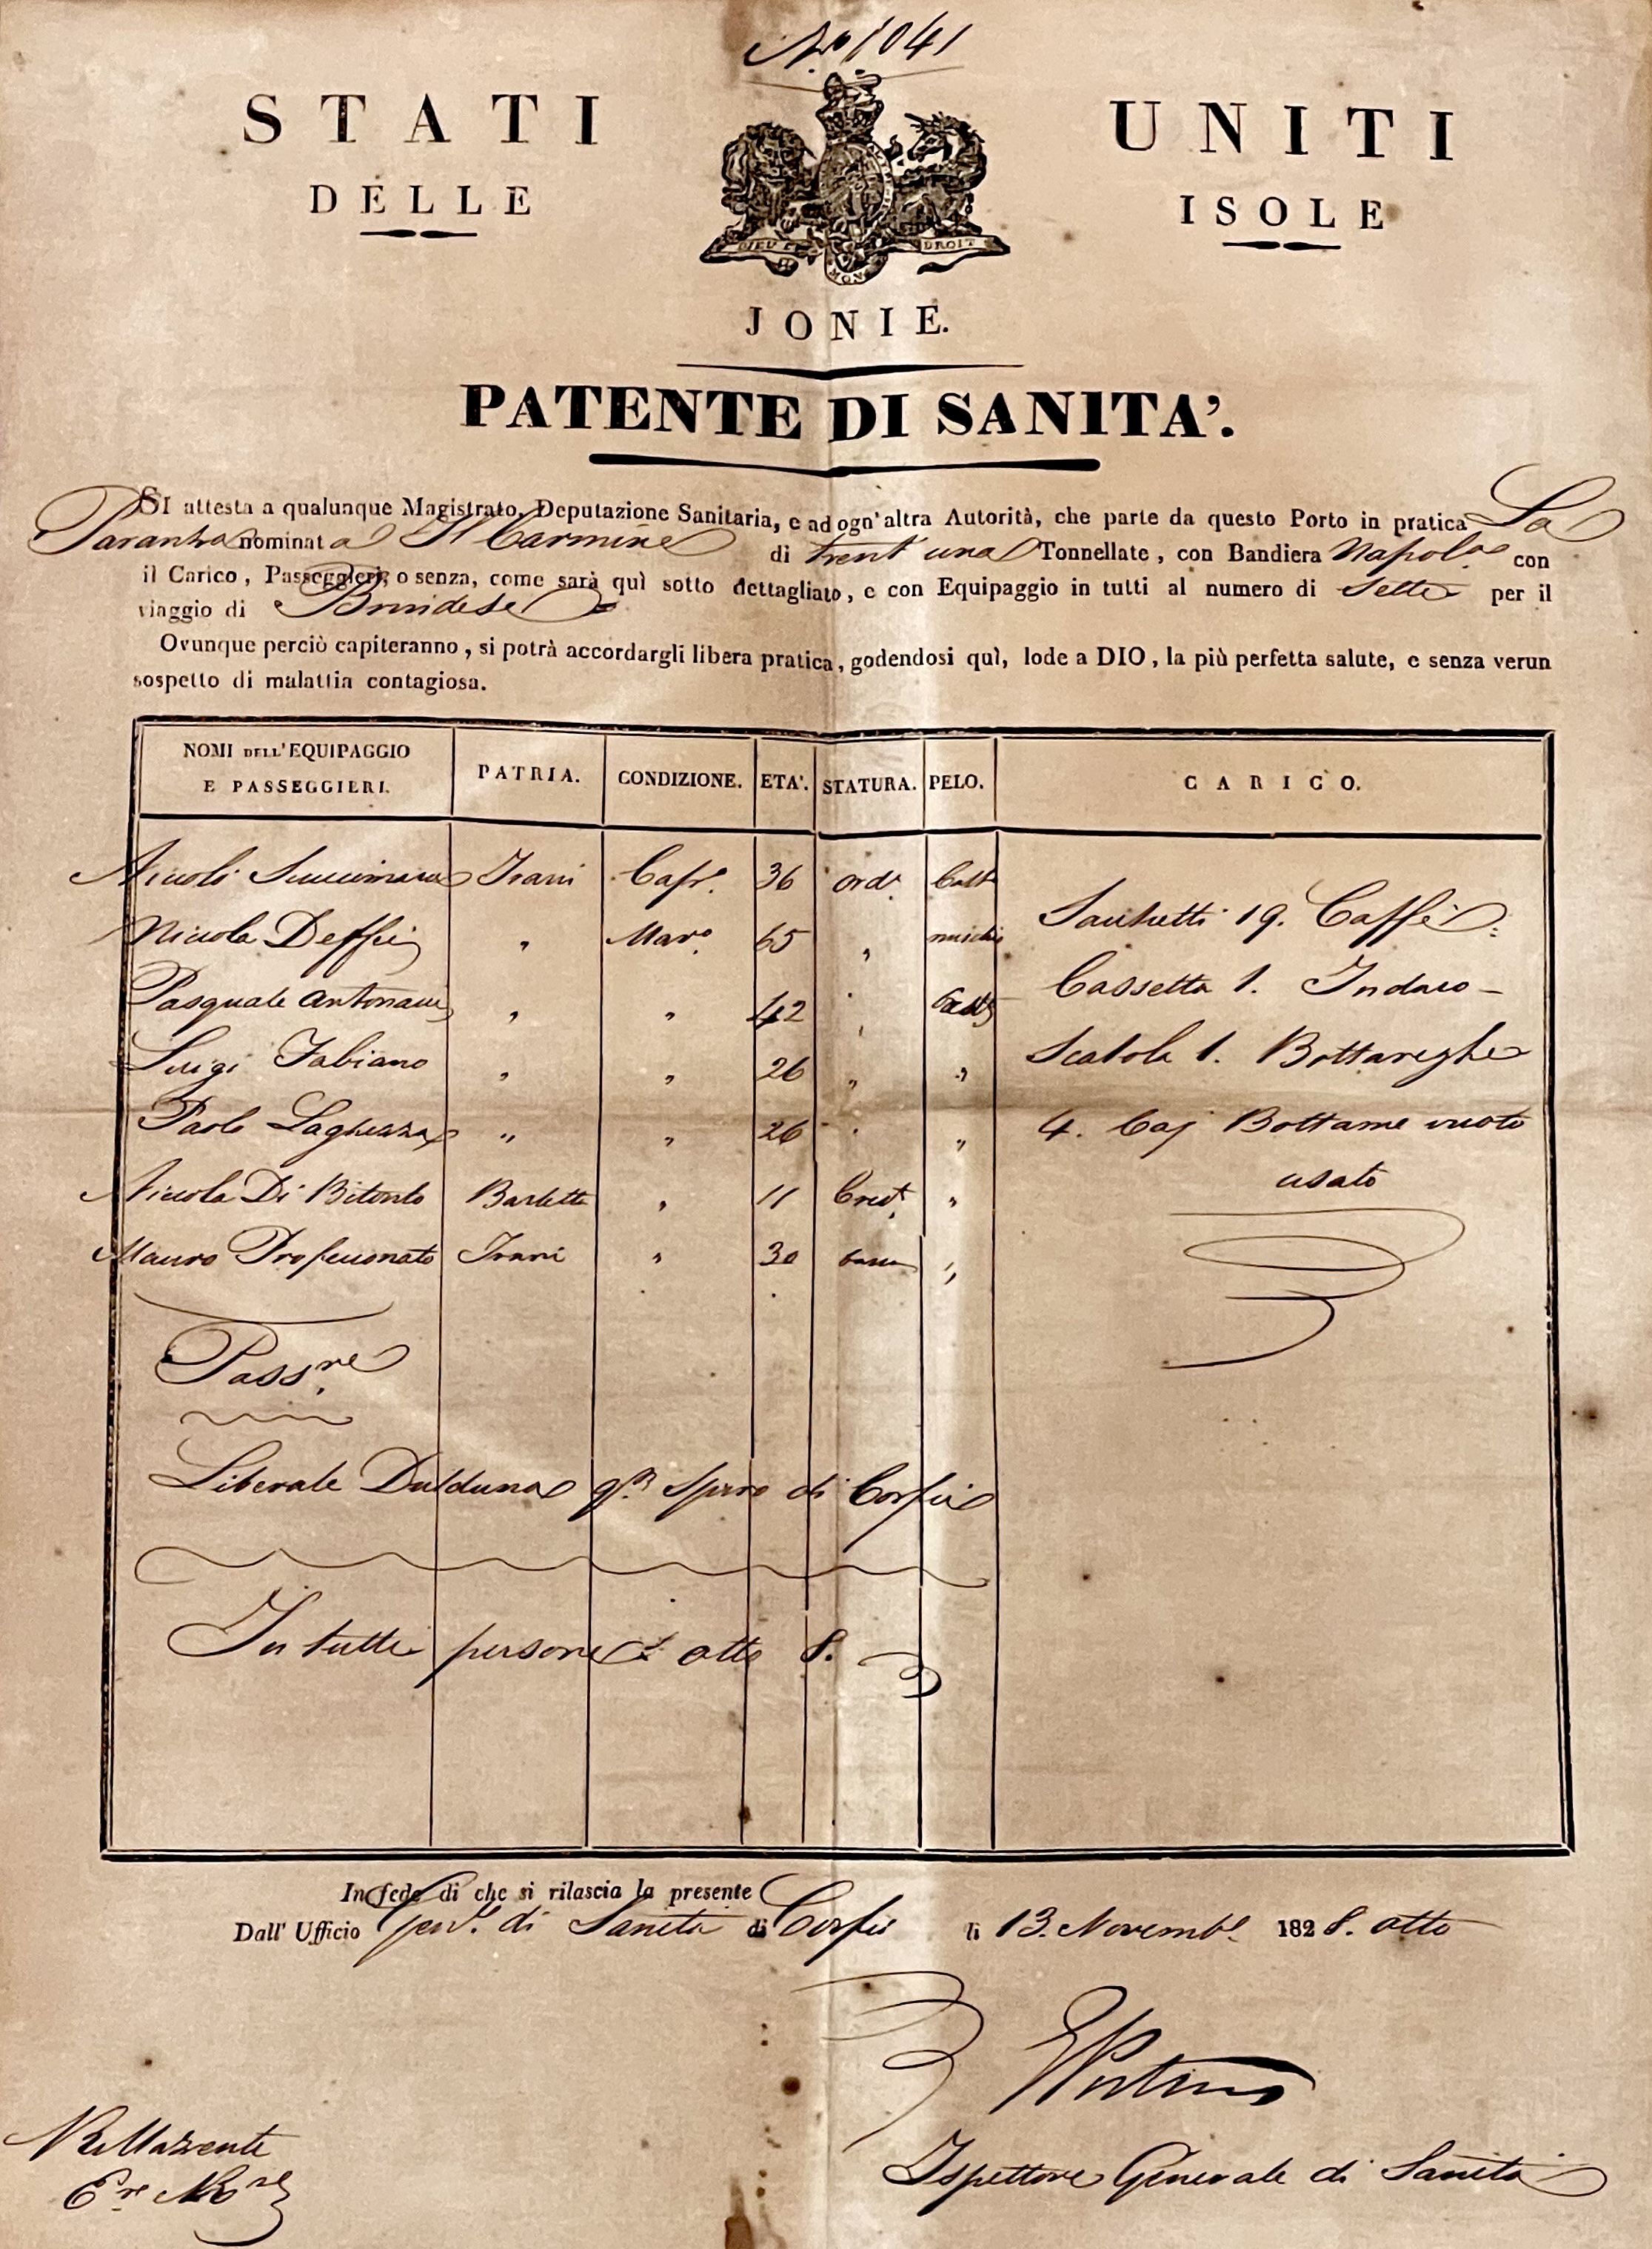 No 1041
STATI UNITI
DELLE ISOLE
DIEU ET MON DROIT
JONIE.
PATENTE DI SANITA'.
SI attesta a qualunque Magistrato, Deputazione Sanitaria, e ad ogn'altra Autorità, che parte da questo Porto in pratica La
Paranza nominata Il Carmine di trent'una Tonnellate, con Bandiera Napol.a con
il Carico, Passeggieri, o senza, come sarà quì sotto dettagliato, e con Equipaggio in tutti al numero di Sette per il
viaggio di Brindese
Ovunque perciò capiteranno, si potrà accordargli libera pratica, godendosi quì, lode a DIO, la più perfetta salute, e senza verun
sospetto di malattia contagiosa.
NOMI DELL'EQUIPAGGIO E PASSEGGIERI. PATRIA. CONDIZIONE. ETA'. STATURA. PELO. CARICO.
Trani Cap.o 36 ord.a Cast
Nicola Mar.o 65 " "
Pasquale " " 42 " Cast
Luigi Fabiano " " 26 " "
Paolo " " 26 " "
Nicola Di Bitonto Barletta " 11 Cresc.t "
Mauro Trani " 30 bassa "
Sachetti 19. Caffè
Cassetta 1. Indaco
Scatola 1. Bottareghe
4. Bottame vuoto
usato
Pass.re
Liberale q.m Spiro di Corfù
In tutti persone otto 8.
In fede di che si rilascia la presente
Dall' Ufficio Gen.l di Sanità di Corfù li 13. Novemb.e 1828. otto
Ispettore Generale di Sanità